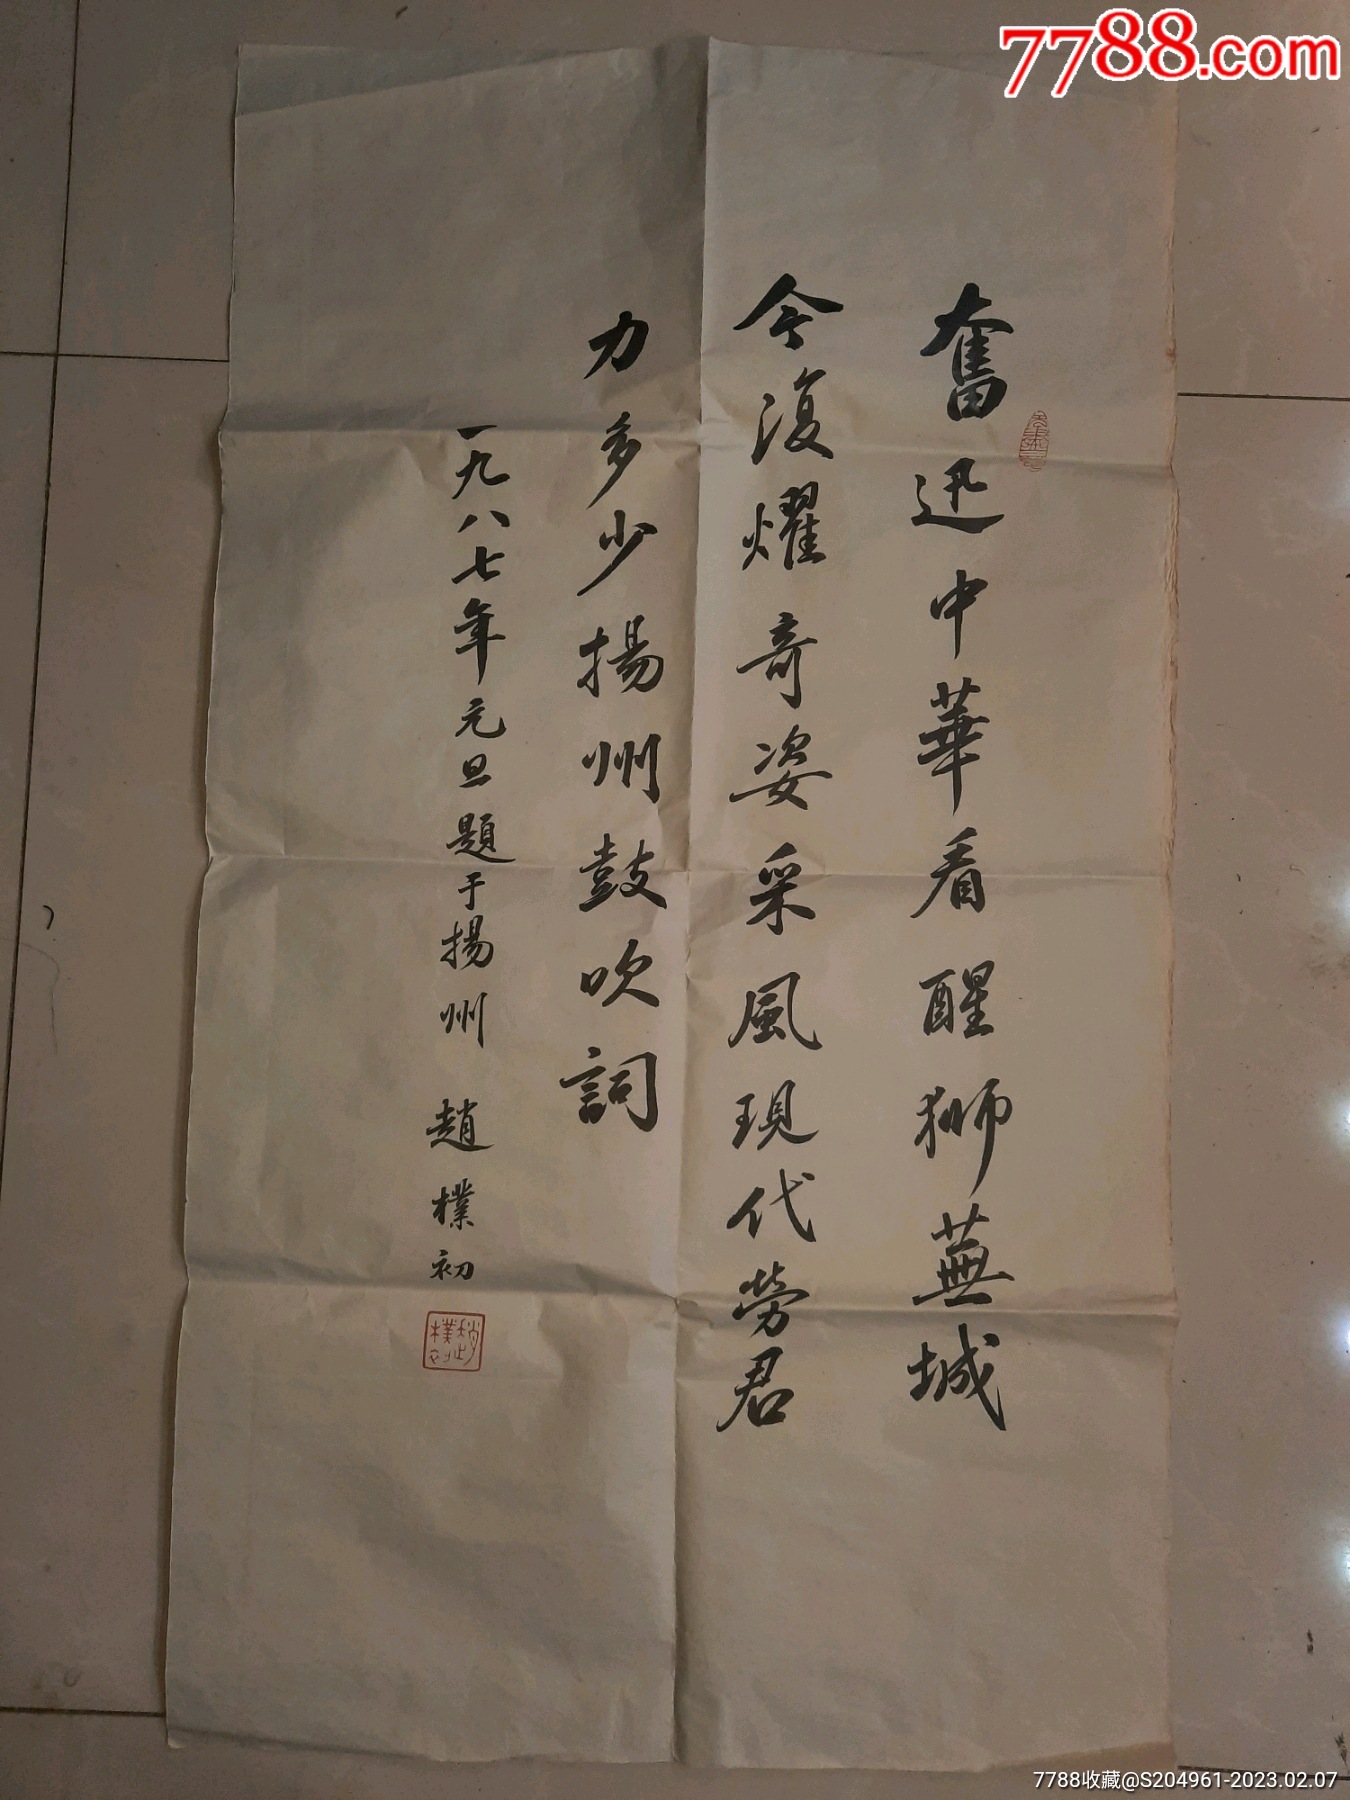 7788.com
奮迅中華看醒獅蕪城
今復耀奇姿采風現代勞君
力多少揚州鼓吹詞
一九八七年元旦題于揚州 趙樸初
趙樸初
7788收藏@S204961-2023.02.07